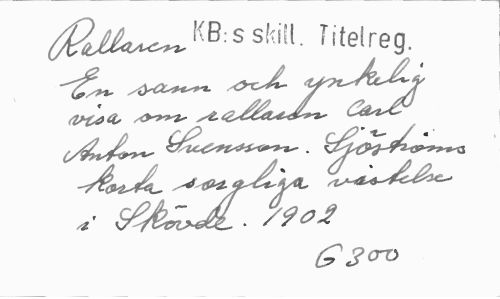 Rallaren KB:s skill. Titelreg.
En sann och ynkelig
visa om rallaren Carl
Anton Svensson. Sjöströms
korta sorgliga vistelse
i Skövde. 1902
G 300